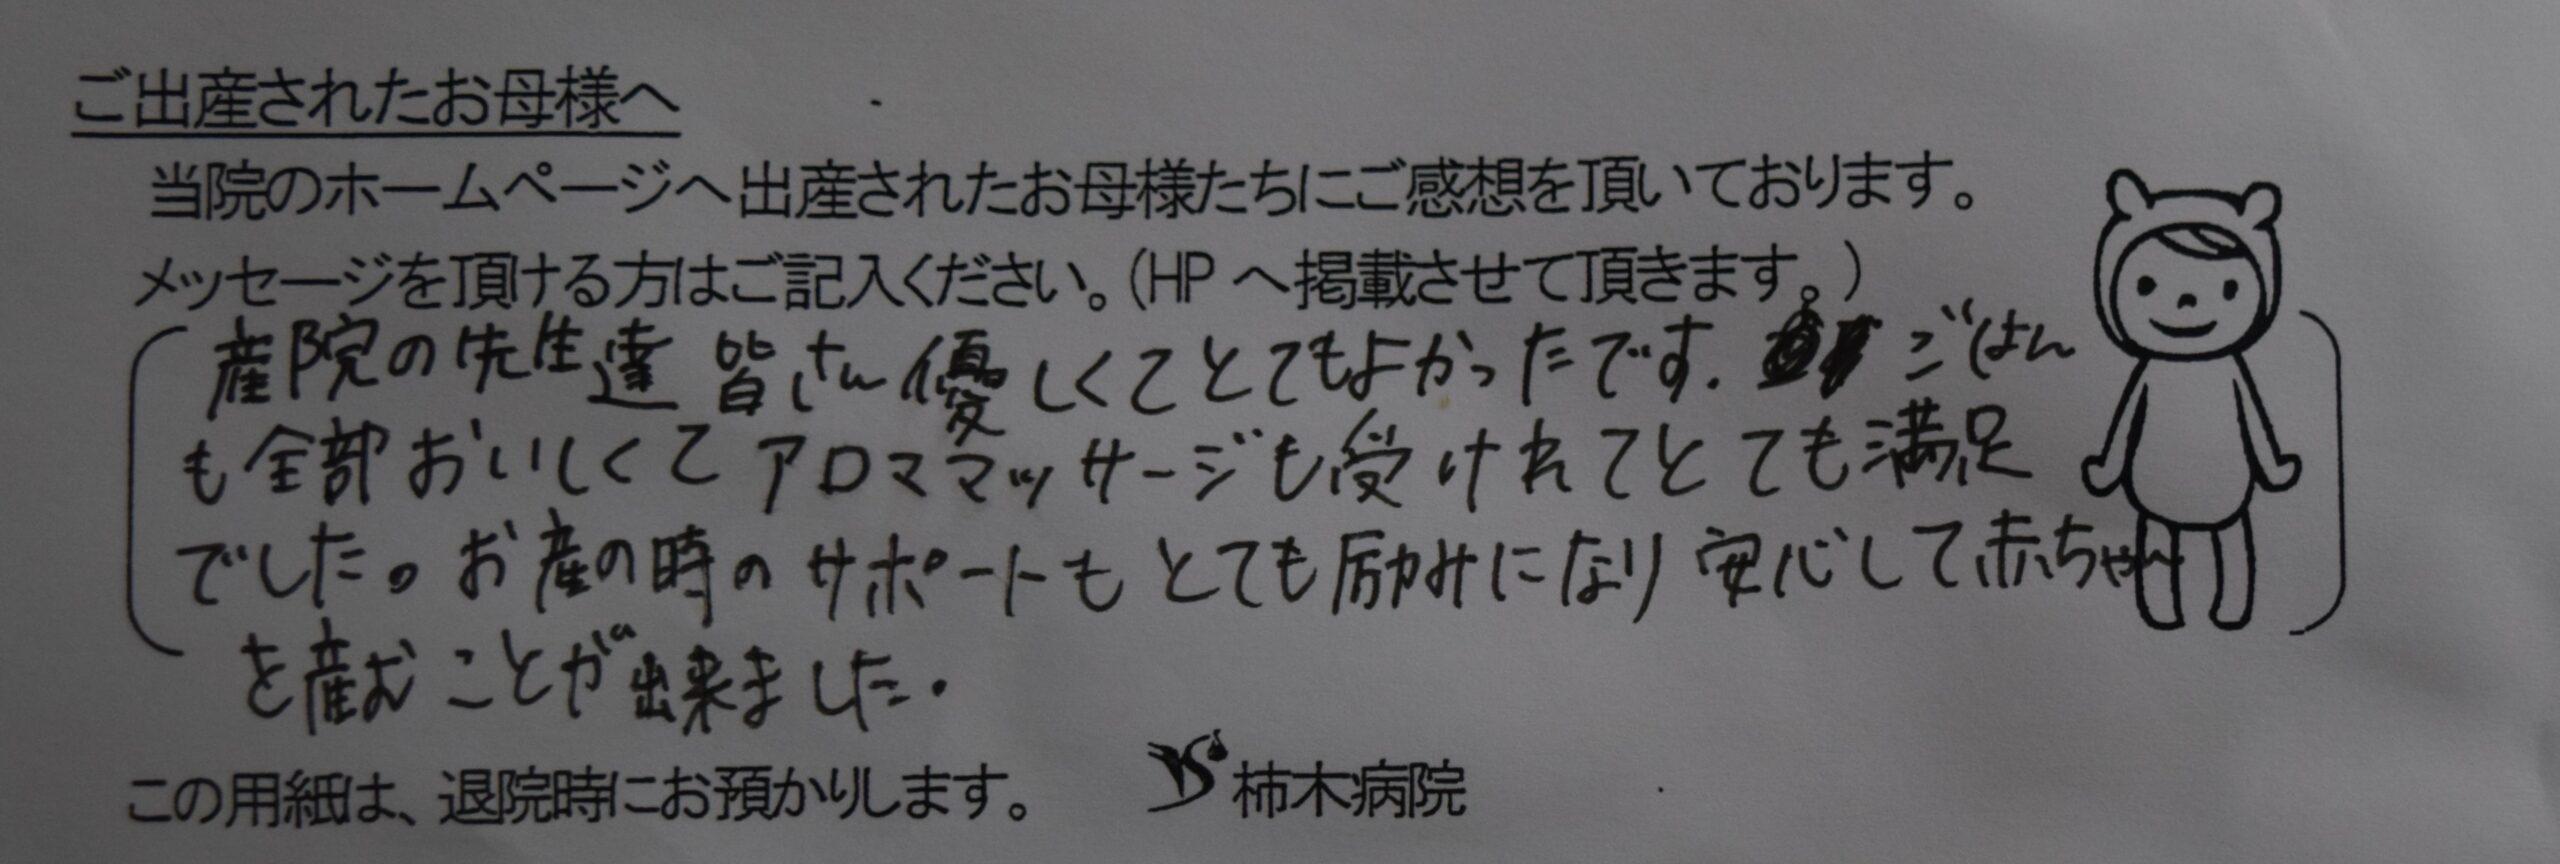 ご出産されたお母様へ
当院のホームページへ出産されたお母様たちにご感想を頂いております。
メッセージを頂ける方はご記入ください。(HPへ掲載させて頂きます。)
産院の先生達 皆さん優しくてとてもよかったです. ごはん
も全部おいしくてアロママッサージも受けれてとても満足
でした。お産の時のサポートもとても励みになり安心して赤ちゃん
を産むことが出来ました.
この用紙は、退院時にお預かりします。 柿木病院